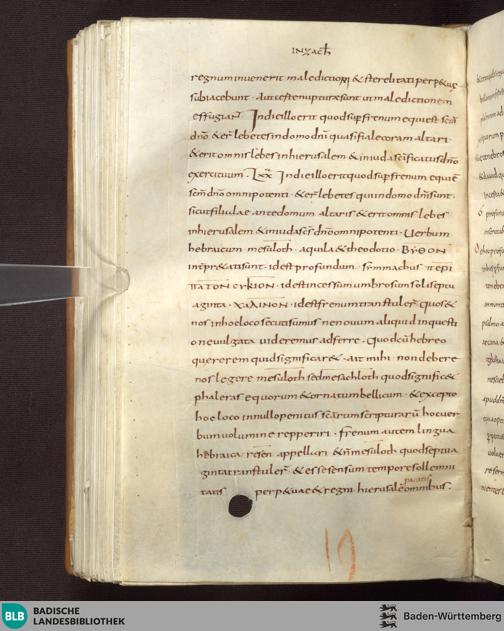 IN ZACH
regnum invenerit maledictioni & sterelitati perp&uae
subiacebunt · aut certe nupturae sunt ut maledictionem
effugiant · In die illo erit quod sup frenum equi est scm
dno & er lebetes in domo dni quasi fialae coram altari ·
& erit omnis lebes in hierusalem & in iuda scificatus dno
exercituum · LXX In die illo erit quod sup frenum equi e
scm dno omnipotenti · & er lebetes qui in domo dni sunt
sicut filiulae ante domum altaris & erit omnis lebes
in hierusalem & in iuda scs dno omnipotenti · Uerbum
hebraicum mesuloth · aquila & theodotio · ΒΥΘΟΝ
interpr&ati sunt · id est profundum · symmachus ΠΕΡΙ
ΠΑΤΟΝ CΥΚΙΟΝ · id est incessum umbrosum soli septu
aginta · ΧΑΛΙΝΟΝ · id est frenum transtuler · quos &
nos in hoc loco secuti sumus ne novum aliquid in questi
one vulgata videremur adferre · Quod cu hebreo
quererem quid significar& · ait mihi · non debere
nos legere mesuloth sed mesaloth quod significa&
phaleras equorum & ornatum bellicum · & excepto
hoc loco in nullo penitus scarum scripturaru hoc ver
bum volumine repperiri · frenum autem lingua
hebraica resen appellari & n mesuloth quod septua
ginta transtuler · & est sensum tempore sollemni
tatis perp&uae & regni hierusale omnibus
pacatis
19
BLB BADISCHE
LANDESBIBLIOTHEK
Baden-Württemberg